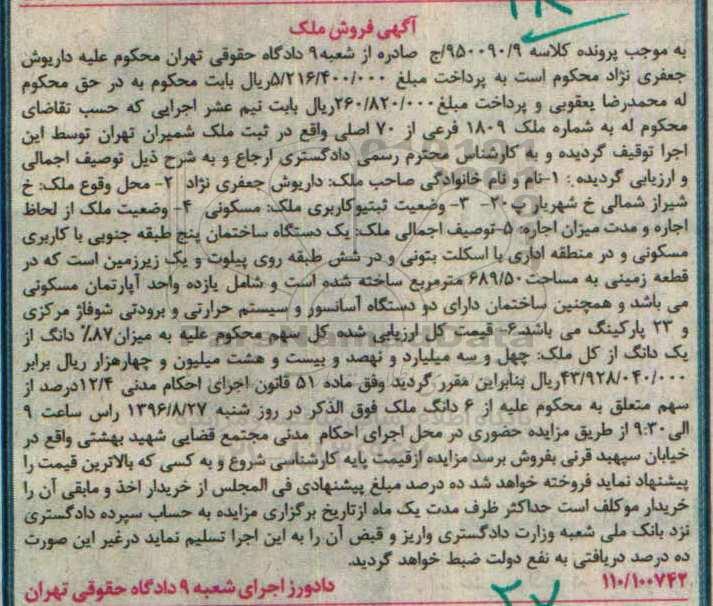 آگهی فروش ملک
به موجب پرونده کلاسه ۹۵۰۰۹۰/۹/ج صادره از شعبه ۹ دادگاه حقوقی تهران محکوم علیه داریوش
جعفری نژاد محکوم است به پرداخت مبلغ ۵/۲۱۶/۴۰۰/۰۰۰ریال بابت محکوم به در حق محکوم
له محمدرضا یعقوبی و پرداخت مبلغ ۲۶۰/۸۲۰/۰۰۰ریال بابت نیم عشر اجرایی که حسب تقاضای
محکوم له به شماره ملک ۱۸۰۹ فرعی از ۷۰ اصلی واقع در ثبت ملک شمیران تهران توسط این
اجرا توقیف گردیده و به کارشناس محترم رسمی دادگستری ارجاع و به شرح ذیل توصیف اجمالی
و ارزیابی گردیده : ۱-نام و نام خانوادگی صاحب ملک: داریوش جعفری نژاد ۲- محل وقوع ملک: خ
شیراز شمالی خ شهریار پ ۲۰- ۳- وضعیت ثبتیوکاربری ملک: مسکونی ۴- وضعیت ملک از لحاظ
اجاره و مدت میزان اجاره: ۵-توصیف اجمالی ملک: یک دستگاه ساختمان پنج طبقه جنوبی با کاربری
مسکونی و در منطقه اداری با اسکلت بتونی و در شش طبقه روی پیلوت و یک زیرزمین است که در
قطعه زمینی به مساحت ۶۸۹/۵۰ مترمربع ساخته شده است و شامل یازده واحد آپارتمان مسکونی
می باشد و همچنین ساختمان دارای دو دستگاه آسانسور و سیستم حرارتی و برودتی شوفاژ مرکزی
و ۲۳ پارکینگ می باشد.۶- قیمت کل ارزیابی شده کل سهم محکوم علیه به میزان ۸۷٪ دانگ از
یک دانگ از کل ملک: چهل و سه میلیارد و نهصد و بیست و هشت میلیون و چهارهزار ریال برابر
۴۳/۹۲۸/۰۴۰/۰۰۰ریال بنابراین مقرر گردید وفق ماده ۵۱ قانون اجرای احکام مدنی ۱۲/۴درصد از
سهم متعلق به محکوم علیه از ۶ دانگ ملک فوق الذکر در روز شنبه ۱۳۹۶/۸/۲۷ راس ساعت ۹
الی ۹:۳۰ از طریق مزایده حضوری در محل اجرای احکام مدنی مجتمع قضایی شهید بهشتی واقع در
خیابان سپهبد قرنی بفروش برسد مزایده ازقیمت پایه کارشناسی شروع و به کسی که بالاترین قیمت را
پیشنهاد نماید فروخته خواهد شد ده درصد مبلغ پیشنهادی فی المجلس از خریدار اخذ و مابقی آن را
خریدار موکلف است حداکثر ظرف مدت یک ماه ازتاریخ برگزاری مزایده به حساب سپرده دادگستری
نزد بانک ملی شعبه وزارت دادگستری واریز و قبض آن را به این اجرا تسلیم نماید درغیر این صورت
ده درصد دریافتی به نفع دولت ضبط خواهد گردید.
۱۱۰/۱۰۰۷۴۲ دادورز اجرای شعبه ۹ دادگاه حقوقی تهران
۳۷